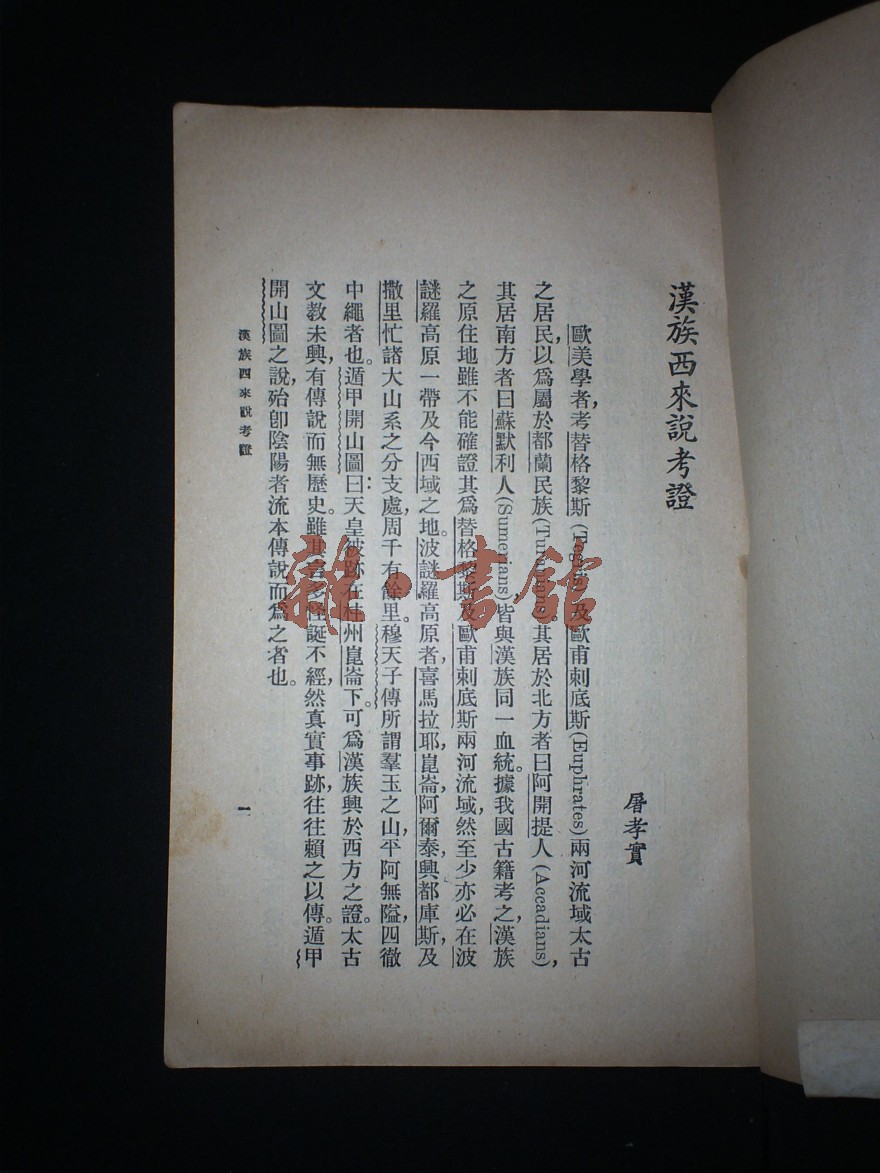 漢族西來說考證
屠孝實
歐美學者,考替格黎斯(Tegris)及歐甫刺底斯(Euphrates)兩河流域太古
之居民,以爲屬於都蘭民族(Turanians)。其居於北方者曰阿開提人(Accadians),
其居南方者曰蘇默利人(Sumerians),皆與漢族同一血統。據我國古籍考之,漢族
之原住地雖不能確證其爲替格黎斯及歐甫刺底斯兩河流域,然至少亦必在波
謎羅高原一帶及今西域之地。波謎羅高原者,喜馬拉耶,崑崙,阿爾泰,興都庫斯,及
撒里忙諸大山系之分支處,周千有餘里。穆天子傳所謂羣玉之山,平阿無隘,四徹
中繩者也。遁甲開山圖曰:天皇被跡在柱州崑崙下。可爲漢族興於西方之證。太古
文教未興,有傳說而無歷史。雖其言多怪誕不經,然真實事跡,往往賴之以傳。遁甲
開山圖之說,殆卽陰陽者流本傳說而爲之者也。
漢族西來說考證
一
雜·書館